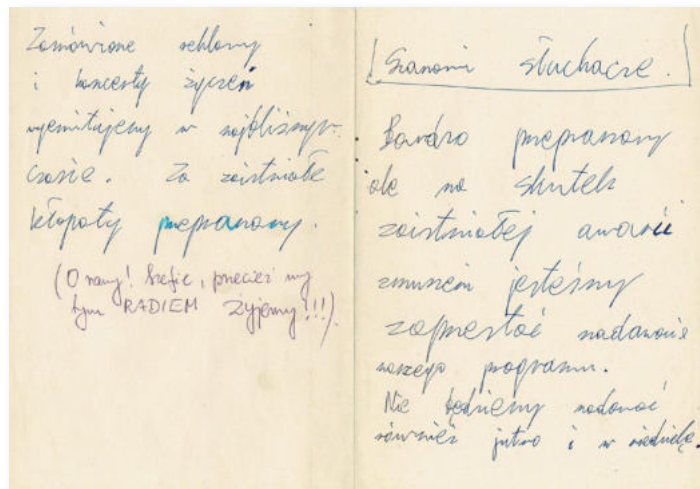 Zamówione reklamy
i koncerty życzeń
wyemitujemy w najbliższym
czasie. Za zaistniałe
kłopoty przepraszamy.
(O rany! Szefie, przecież my
tym RADIEM żyjemy!!!)
Szanowni słuchacze.
Bardzo przepraszamy
ale na skutek
zaistniałej awarii
zmuszeni jesteśmy
zaprzestać nadawanie
naszego programu.
Nie będziemy nadawać
również jutro i w niedzielę.